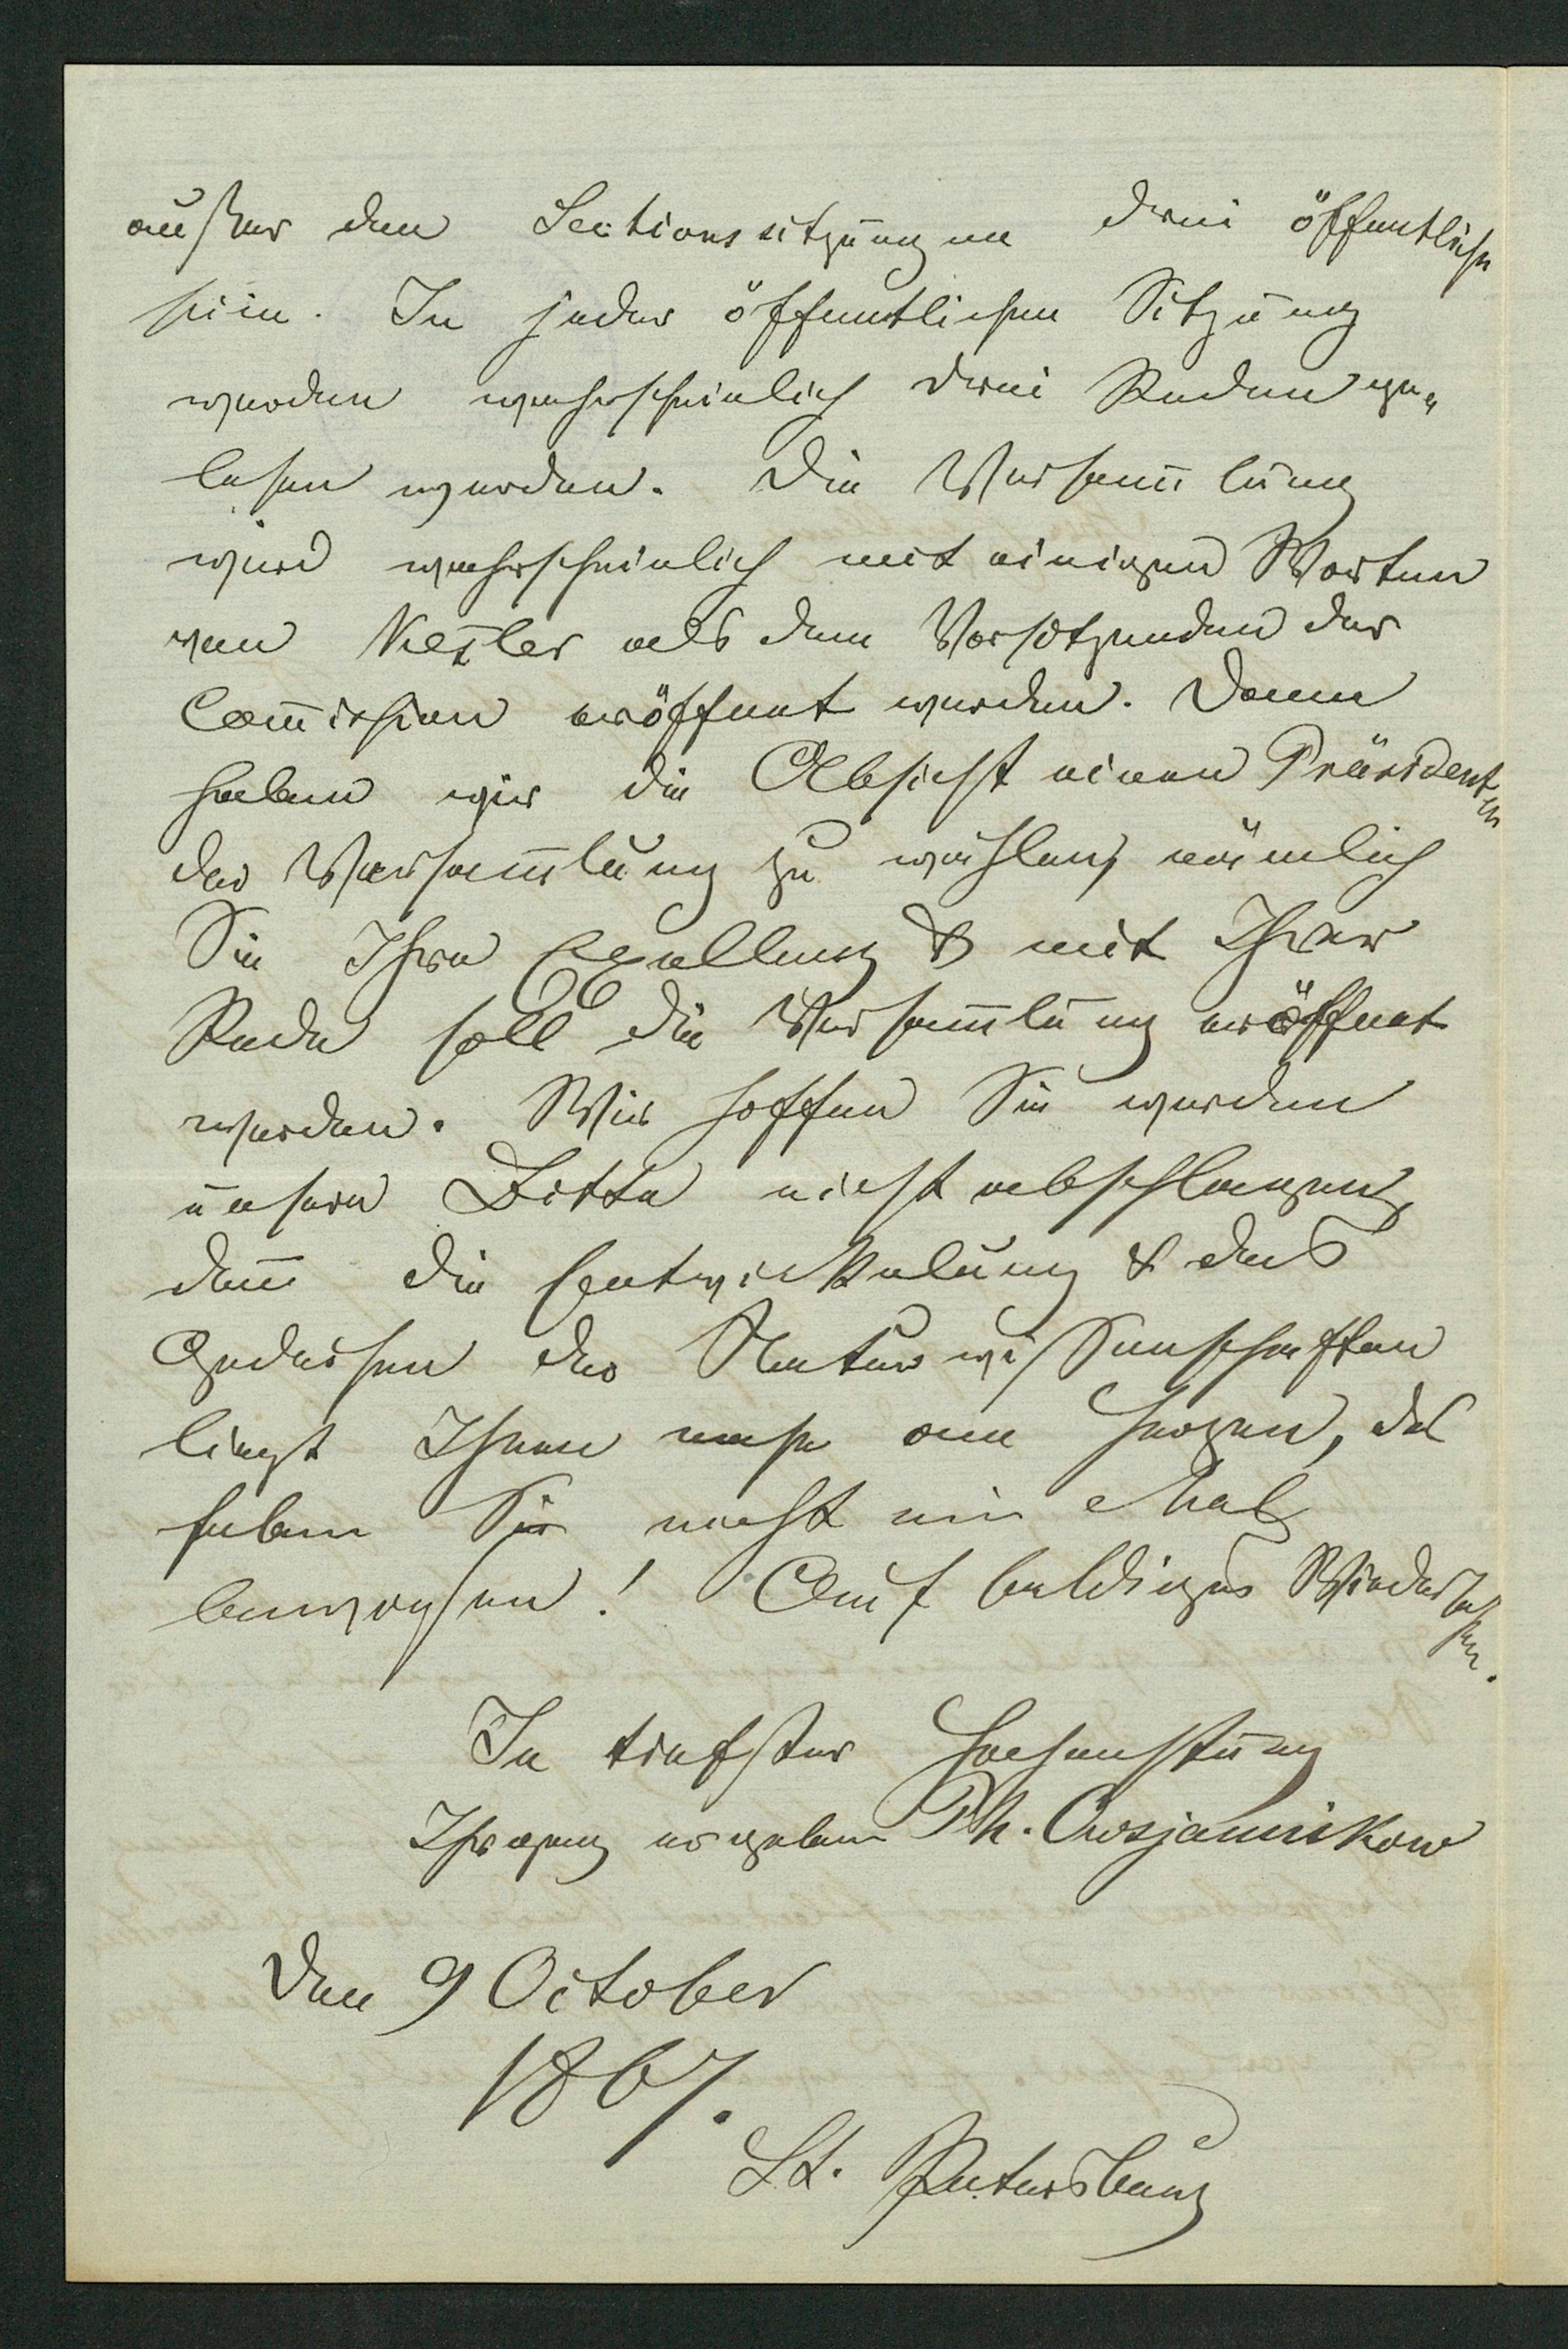 außer den Sectionssitzungen drei öffentliche
sein. In jeder öffentlichen Sitzung
werden wahrscheinlich drei Reden ge„
lesen werden. Die Versam̄lung
wird wahrscheinlich mit einigen Worten
von Keßler als dem Vorsitzenden der
Com̄ission eröffnet werden. Dann
haben wir die Absicht einen Präsidenten
der Versam̄lung zu wählen, nämlich
Sie Ihre Excellenz & mit Ihrer
Rede soll die Versam̄lung eröffnet
werden. Wir hoffen Sie werden
unsere Bitte nicht abschlagen,
den̄ die Entwickelung & das
Gedeihen der Naturwissenschaften
liegt Ihnen nahe am Herzen, das
haben Sie nicht ein Mal
bewiesen! Auf baldiges Wiedersehen.
In tiefster Hochachtung
Ihr ganz ergebener Ph. Owsjannikow
Den 9 October
1867.
St. Petersburg